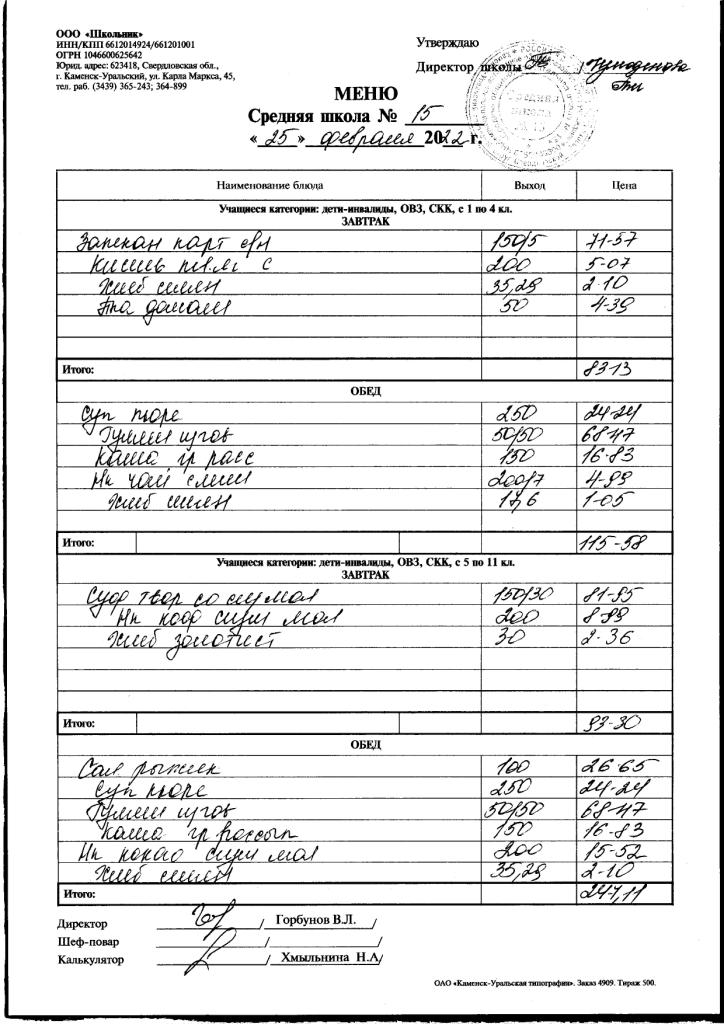 ООО «Школьник»
ИНН/КПП 6612014924/661201001
ОГРН 1046600625642
Юрид. адрес: 623418, Свердловская обл.,
г. Каменск-Уральский, ул. Карла Маркса, 45,
тел. раб. (3439) 365-243; 364-899
Утверждаю
Директор школы
МЕНЮ
Средняя школа № 15
« 25 » февраля 2022 г.
Наименование блюда Выход Цена
Учащиеся категории: дети-инвалиды, ОВЗ, СКК, с 1 по 4 кл.
ЗАВТРАК
Запекан карт 150/5 71-57
Кисель с 200 5-07
Хлеб 35,29 2-10
50 4-39
Итого: 83-13
ОБЕД
Суп пюре 250 24-24
Гуляш 50/50 68-47
Каша гр расс 150 16-83
Нп чай слим 200/7 4-99
Хлеб 17,6 1-05
Итого: 115-58
Учащиеся категории: дети-инвалиды, ОВЗ, СКК, с 5 по 11 кл.
ЗАВТРАК
твор со сгу мол 150/30 81-95
Нп кофе сгущ мол 200 8-99
Хлеб золотист 30 2-36
Итого: 93-30
ОБЕД
Сал рыжик 100 26-65
Суп пюре 250 24-24
Гуляш 50/50 68-47
Каша гр рассып 150 16-83
Нп какао сгущ мол 200 15-52
Хлеб 35,29 2-10
Итого: 247,11
Директор / Горбунов В.Л. /
Шеф-повар / /
Калькулятор / Хмыльнина Н.А/
ОАО «Каменск-Уральская типография». Заказ 4909. Тираж 500.